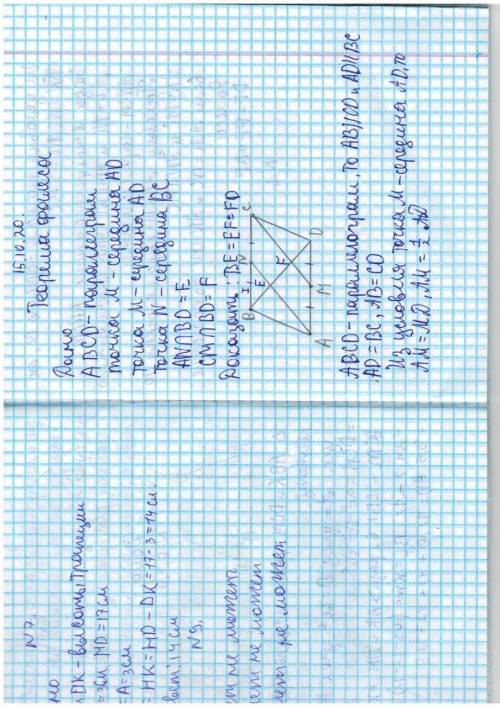 N 7.
но
DK - высоты трапеции
= 3см MD = 17см
= A = 3см
= HK = HD - DK = 17 - 3 = 14 см.
вет: 14 см
N 9.
ет не может
ет не может
ет не может
15.10.20.
Теорема фалеса
Дано
ABCD - параллеграм
точка M - середина AD
точка M - середина AD
точка N - середина BC
AN∩BD = E
CM∩BD = F
Доказать: BE = EF = FD
B N C
E
F
A M D
ABCD - параллелограм, то AB||CD и AD||BC
AD = BC, AB = CD
Из условия точка M - середина AD, то
AM = MD, AM = 1/2 AD